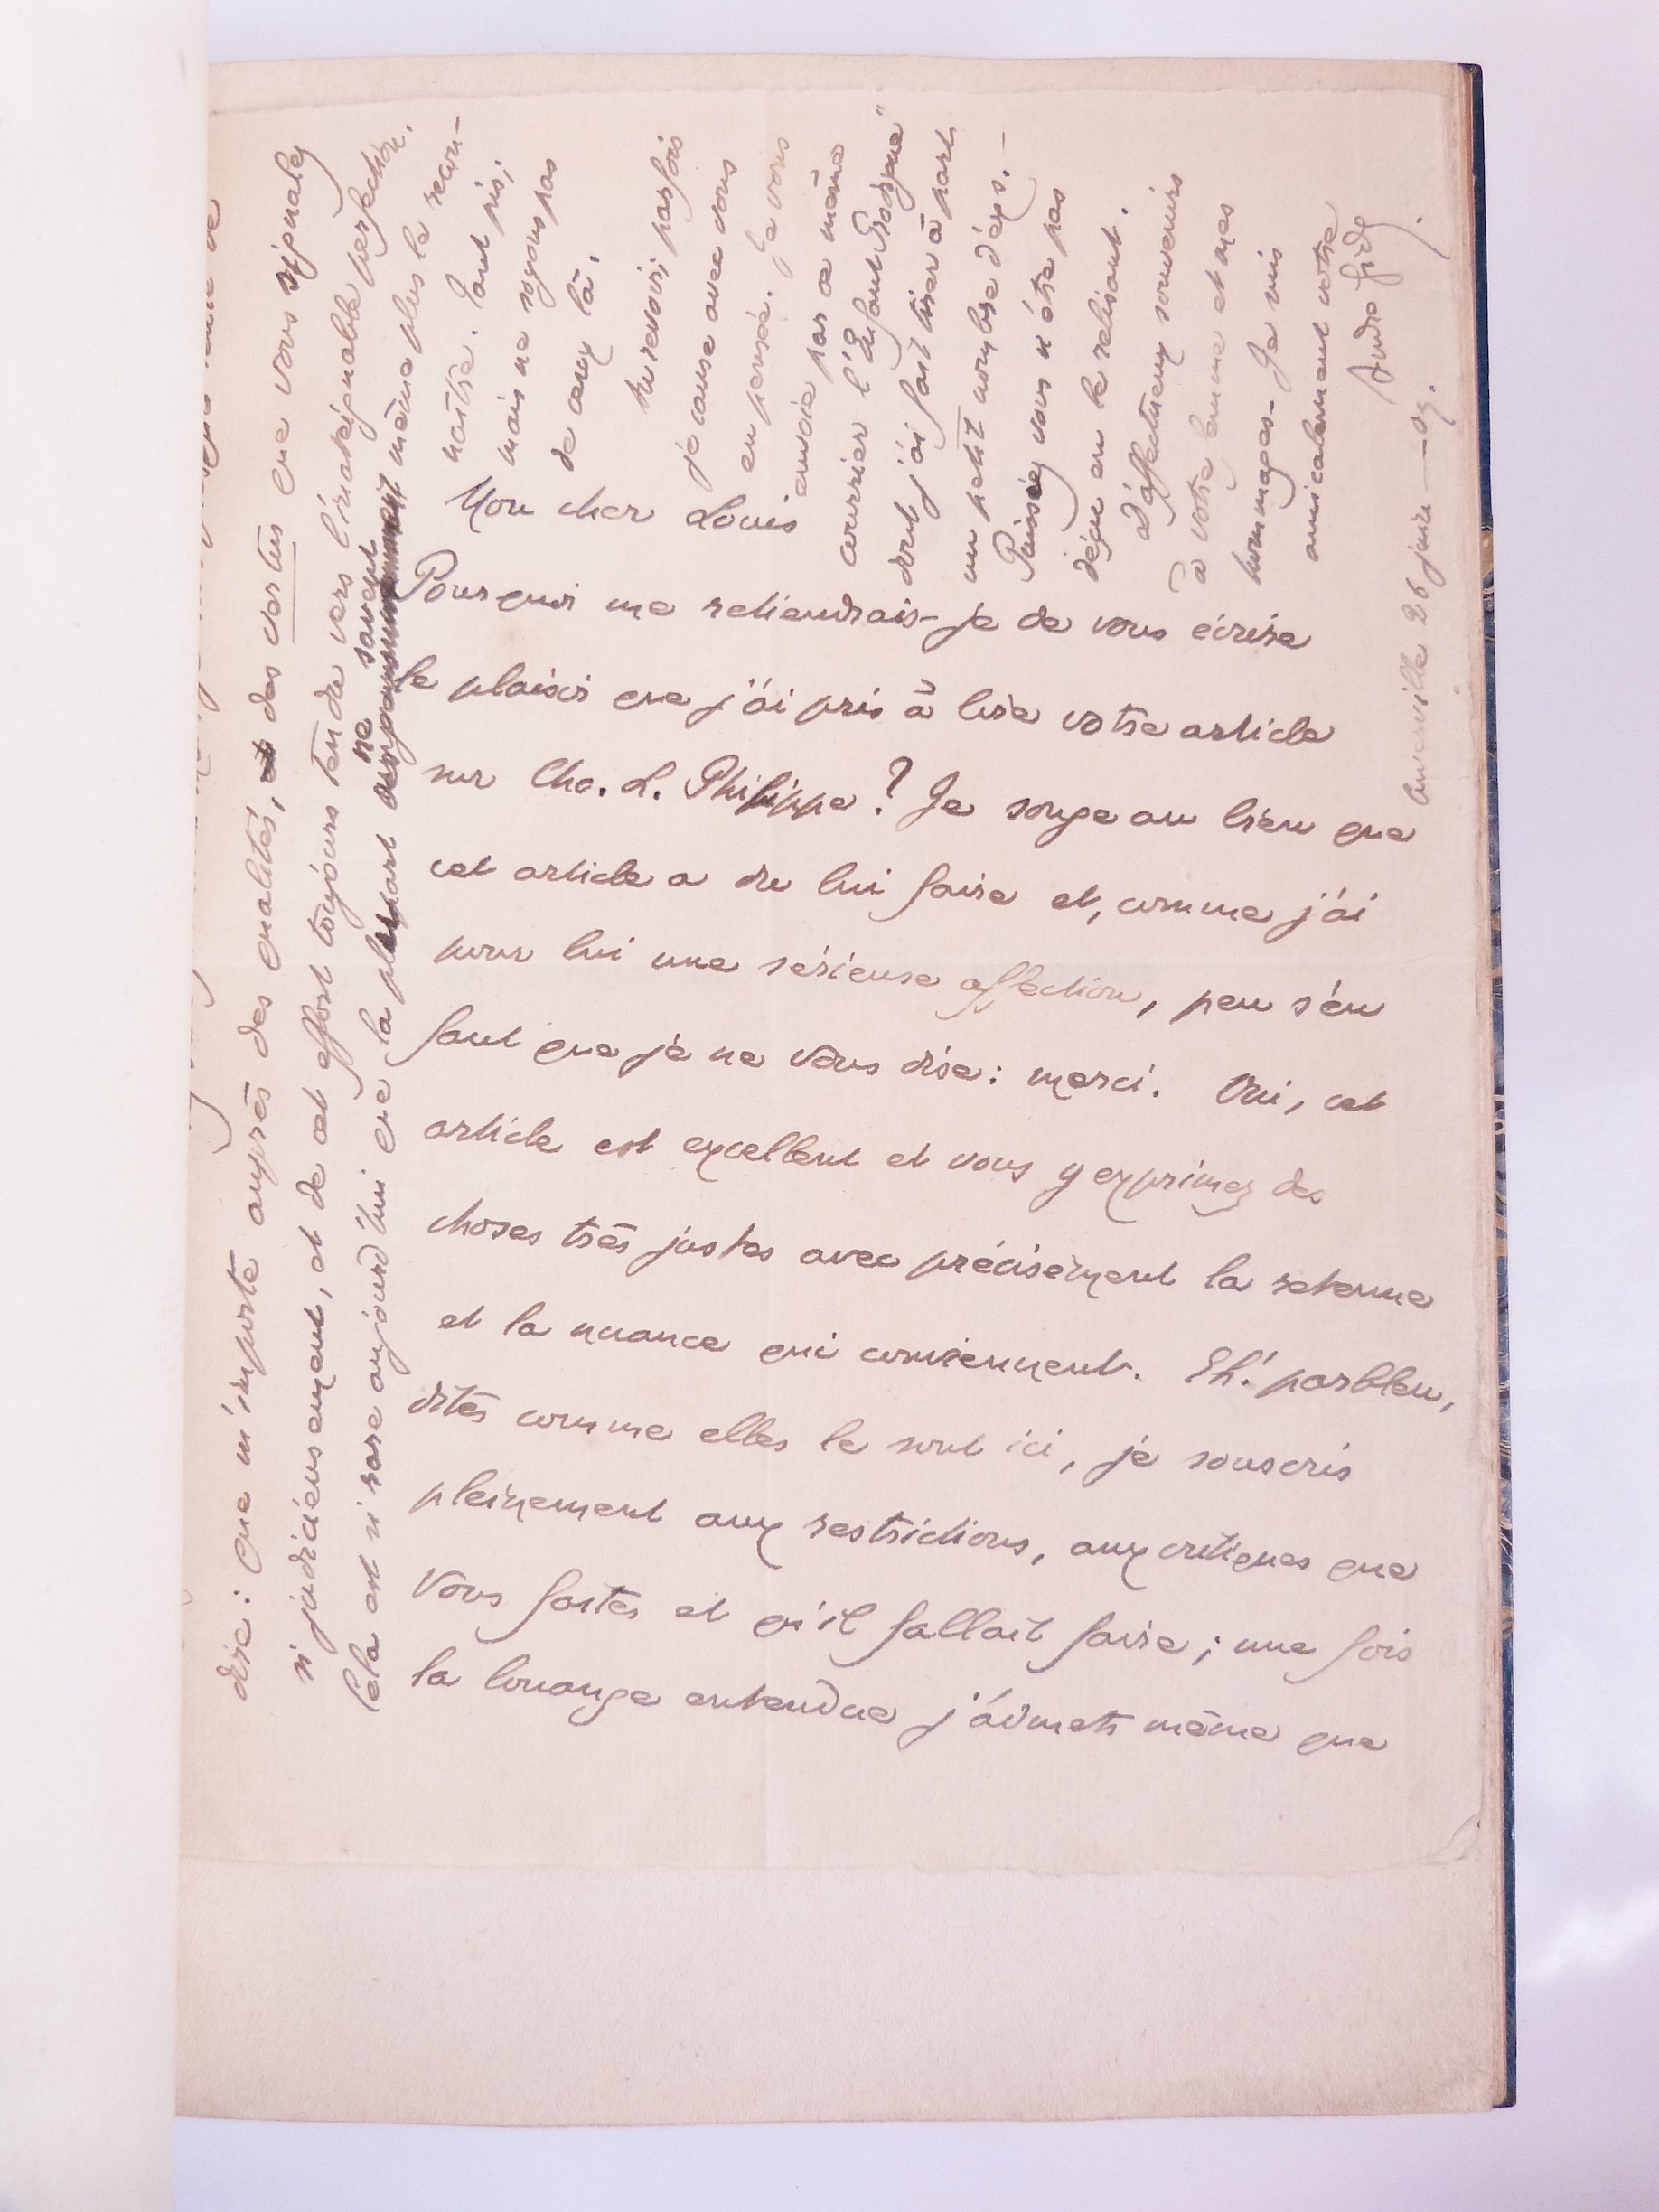 Mon cher Louis
Pourquoi me retiendrais-je de vous écrire
le plaisir que j'ai pris à lire votre article
sur Cha. L. Philippe ? Je songe au bien que
cet article a du lui faire et, comme j'ai
pour lui une sérieuse affection, peu s'en
faut que je ne vous dise : merci. Oui, cet
article est excellent et vous y exprimez des
choses très justes avec précisément la retenue
et la nuance qui conviennent. Eh! parbleu,
dites comme elles le sont ici, je souscris
pleinement aux restrictions, aux critiques que
vous faites et qu'il fallait faire ; une fois
la louange entendue j'admets même que
dise : Que m'importe auprès des qualités, des vertus que vous signalez
si judicieusement, et de cet effort toujours tendu vers l'inatteignable perfection.
Cela est si rare aujourd'hui que la plupart ne savent même plus le recon-
naître. Tant pis ;
mais ne soyons pas
de ceux là.
Au revoir ; parfois
je cause avec vous
en pensée. Je vous
envoie par ce même
courrier l'"Enfant Prodigue"
dont j'ai fait tirer à part
un petit nombre d'exs. —
Puissiez vous n'être pas
déçu en le relisant.
d'affectueux souvenirs
à votre femme et mes
hommages. Je suis
amicalement votre
André Gide.
Cuverville 26 juin — 09.